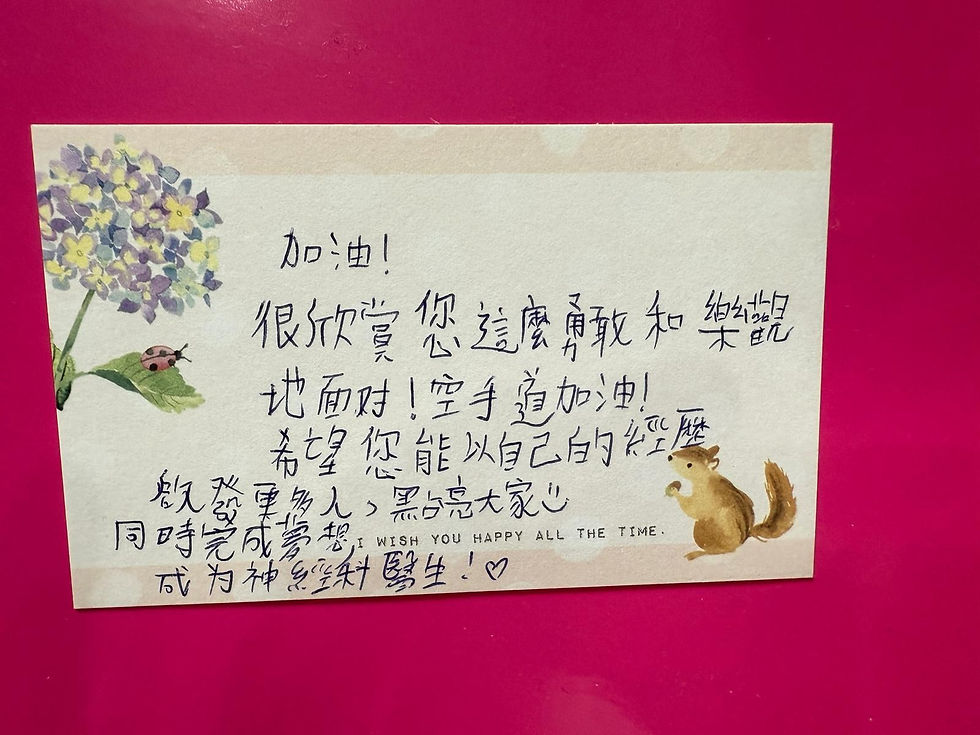 加油!
很欣賞您這麼勇敢和樂觀
地面对!空手道加油!
希望您能以自己的經歷
啟發更多人,點亮大家
同時完成夢想
I WISH YOU HAPPY ALL THE TIME.
成为神經科醫生!♡